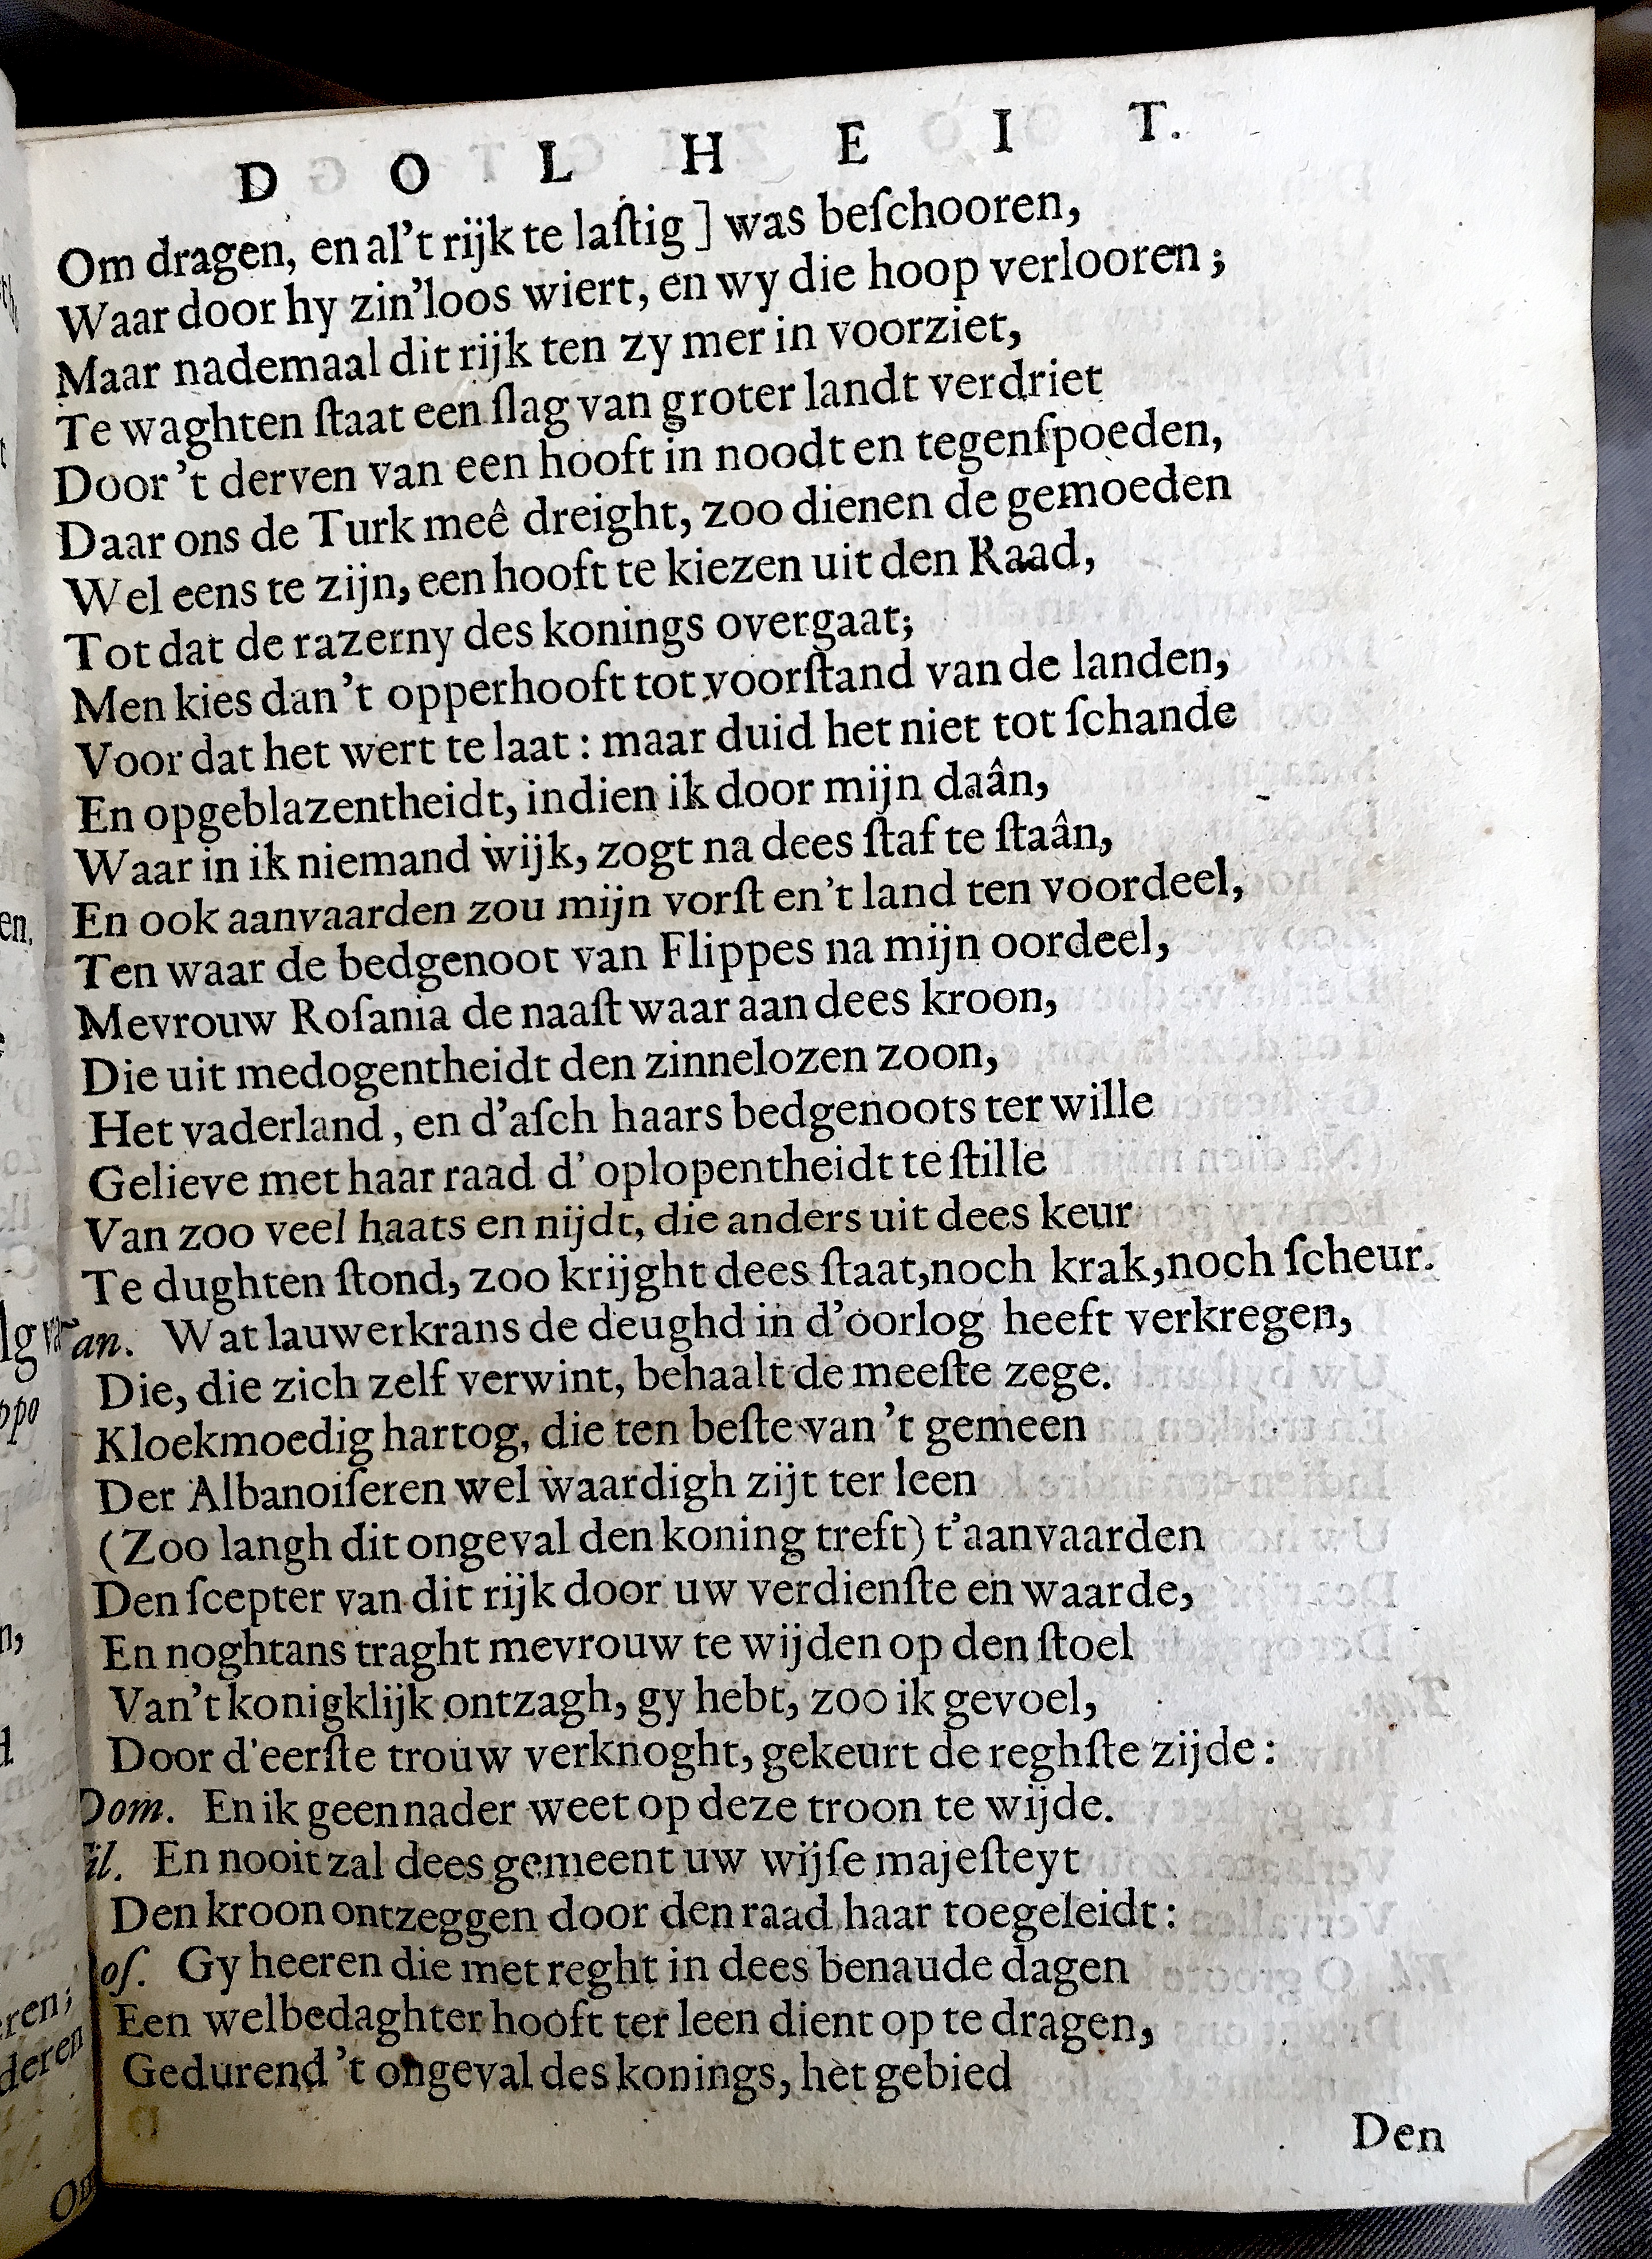 D O L H E I T.
Om dragen, en al't rijk te laſtig ] was beſchooren,
Waar door hy zin'loos wiert, en wy die hoop verlooren ;
Maar nademaal dit rijk ten zy mer in voorziet,
Te waghten ſtaat een ſlag van groter landt verdriet
Door 't derven van een hooft in noodt en tegenſpoeden,
Daar ons de Turk meê dreight, zoo dienen de gemoeden
Wel eens te zijn, een hooft te kiezen uit den Raad,
Tot dat de razerny des konings overgaat;
Men kies dan 't opperhooft tot voorſtand van de landen,
Voor dat het wert te laat : maar duid het niet tot ſchande
En opgeblazentheidt, indien ik door mijn daân,
Waar in ik niemand wijk, zogt na dees ſtaf te ſtaân,
En ook aanvaarden zou mijn vorſt en 't land ten voordeel,
Ten waar de bedgenoot van Flippes na mijn oordeel,
Mevrouw Roſania de naaſt waar aan dees kroon,
Die uit medogentheidt den zinnelozen zoon,
Het vaderland, en d'aſch haars bedgenoots ter wille
Gelieve met haar raad d' oplopentheidt te ſtille
Van zoo veel haats en nijdt, die anders uit dees keur
Te dughten ſtond, zoo krijght dees ſtaat, noch krak, noch ſcheur.
an. Wat lauwerkrans de deughd in d'oorlog heeft verkregen,
Die, die zich zelf verwint, behaalt de meeſte zege.
Kloekmoedig hartog, die ten beſte van 't gemeen
Der Albanoiſeren wel waardigh zijt ter leen
(Zoo langh dit ongeval den koning treft) t'aanvaarden
Den ſcepter van dit rijk door uw verdienſte en waarde,
En noghtans traght mevrouw te wijden op den ſtoel
Van't konigklijk ontzagh, gy hebt, zoo ik gevoel,
Door d'eerſte trouw verknoght, gekeurt de reghſte zijde :
Dom. En ik geen nader weet op deze troon te wijde.
il. En nooit zal dees gemeent uw wijſe majeſteyt
Den kroon ontzeggen door den raad haar toegeleidt :
oſ. Gy heeren die met reght in dees benaude dagen
Een welbedaghter hooft ter leen dient op te dragen,
Gedurend 't ongeval des konings, het gebied
Den